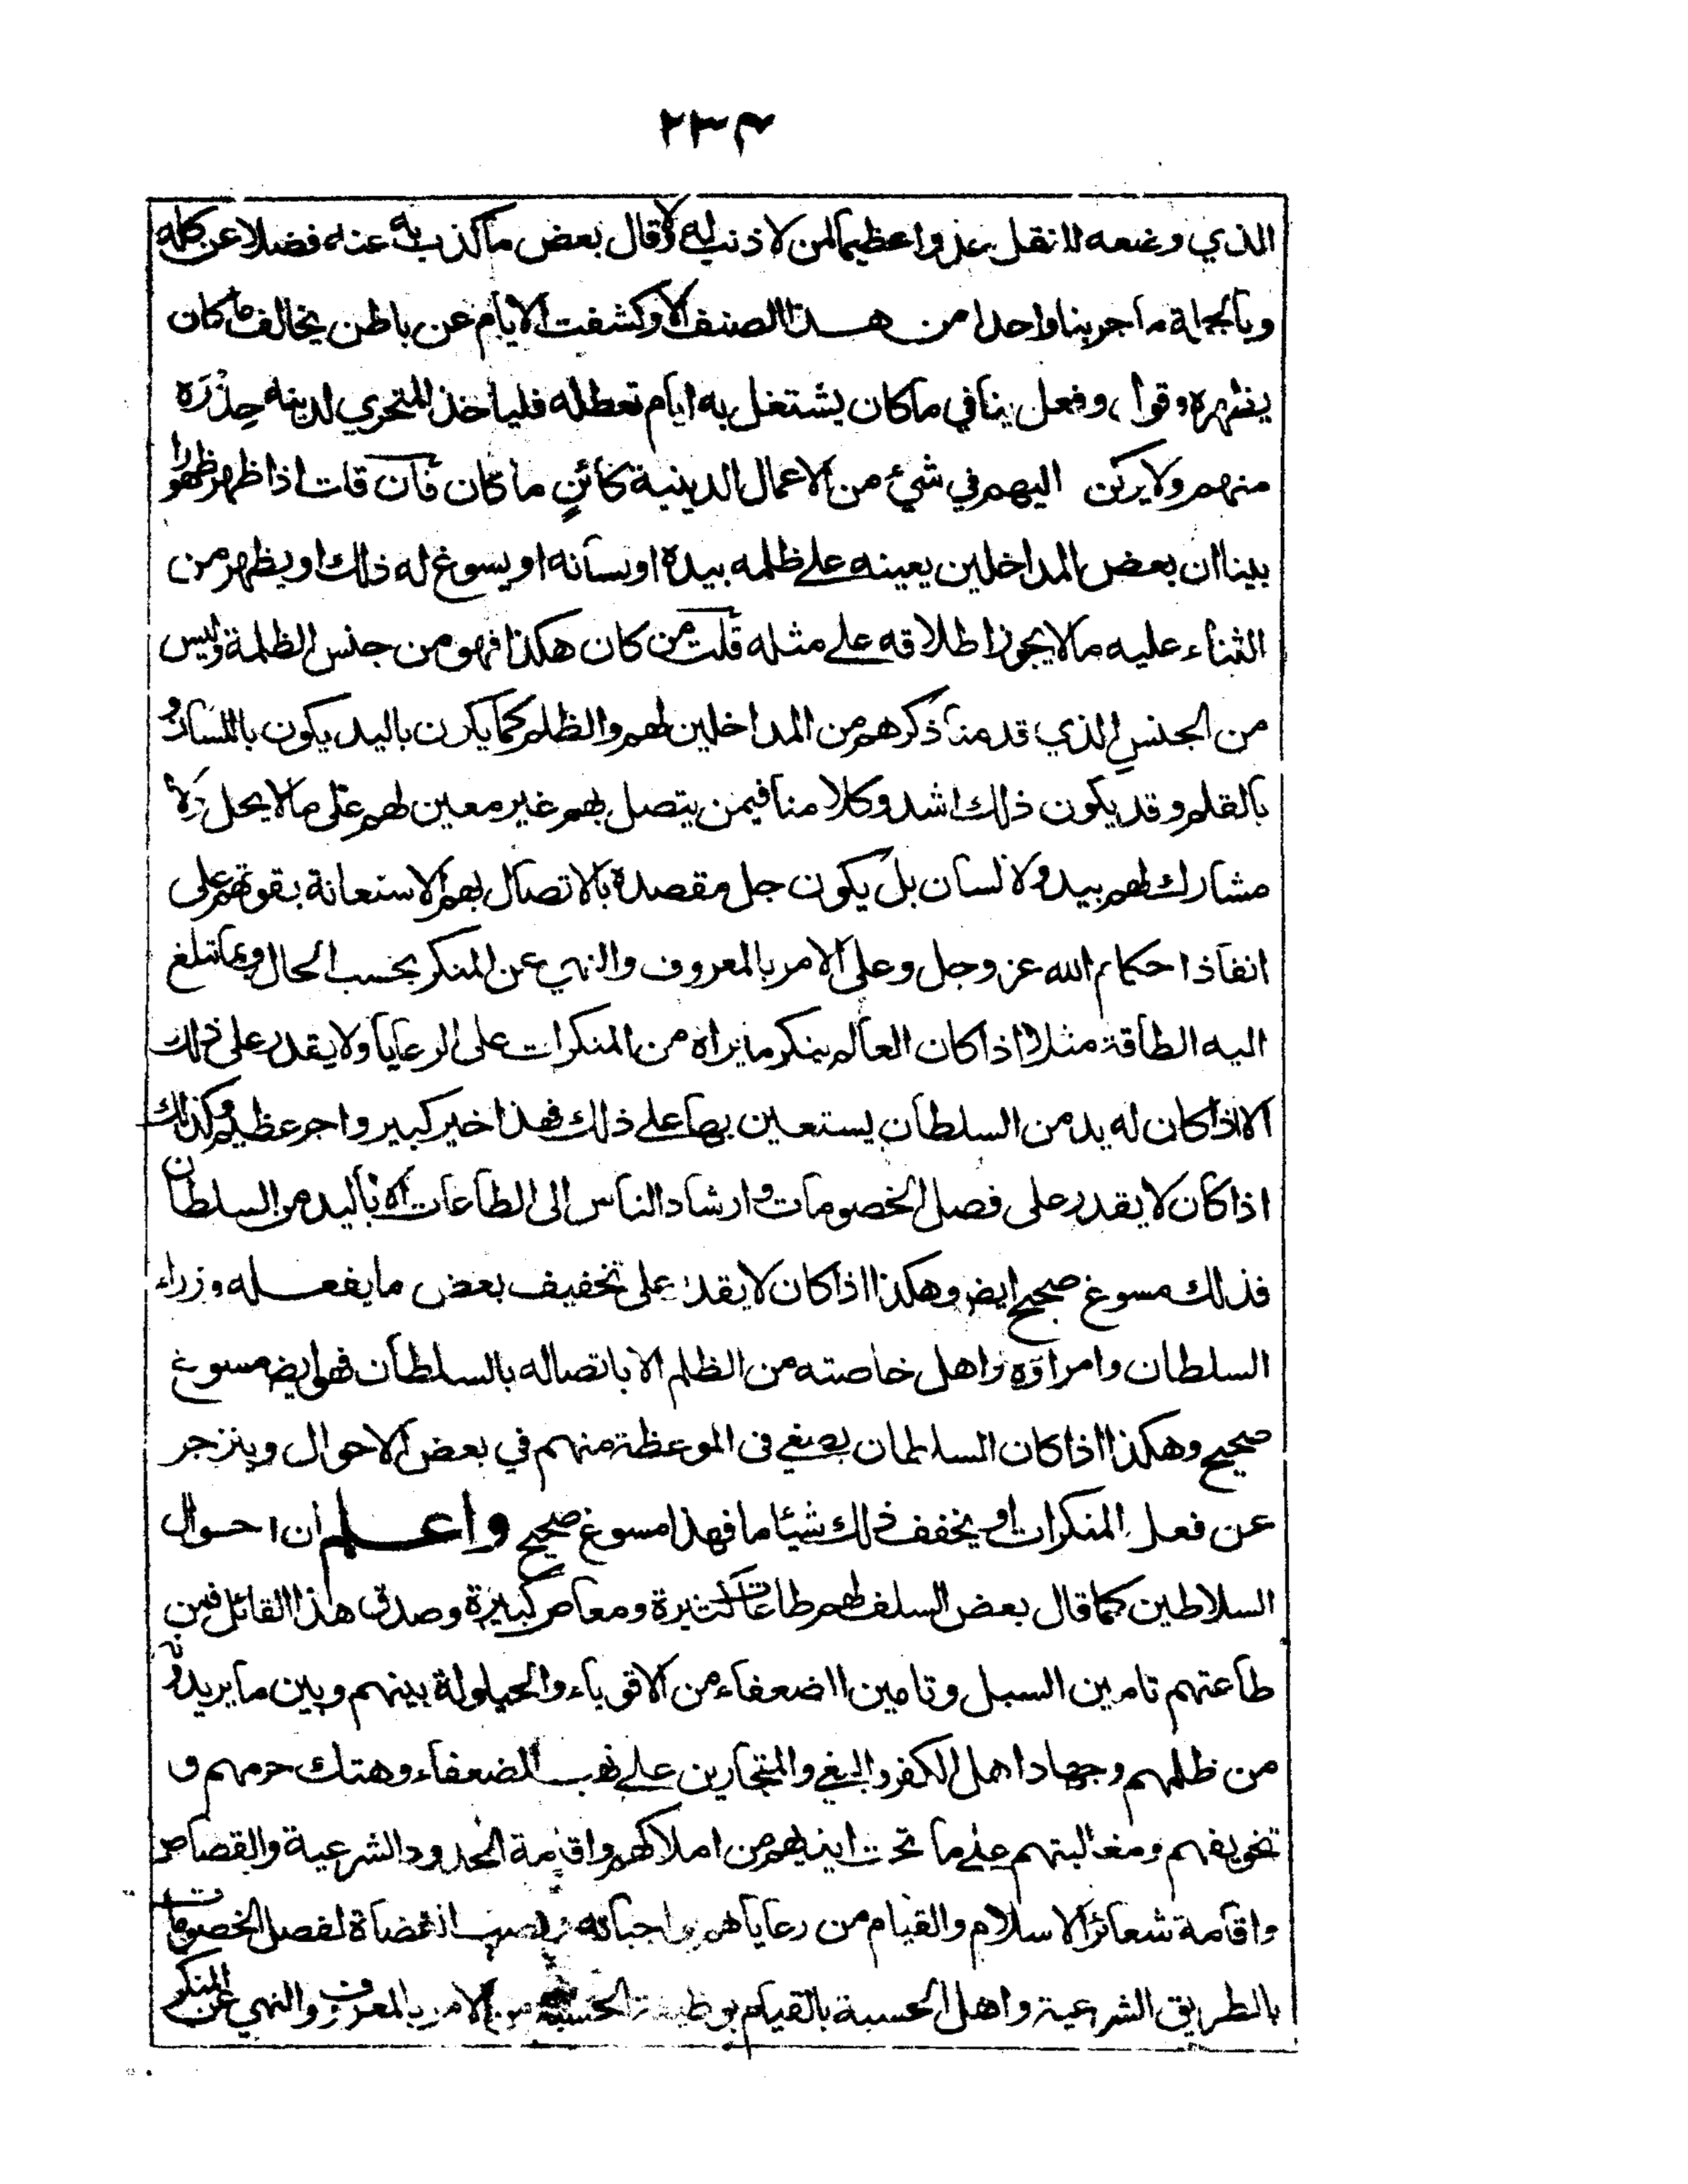 ٢٣٤
الذي وضعه لانقلب عدوا عظيما لمن لا ذنب له ولا قال بعض ما كذب به عنه فضلا عن كله
وبالجملة ما جربنا واحدا من هذا الصنف الا وكشفت الايام عن باطن يخالف ما كان
يظهره وقول وفعل ينافي ما كان يشتغل به ايام تعطله فلياخذ المتحري لدينه حِذْرَه
منهم ولا يركن اليهم في شيئ من الاعمال الدينية كائنٍ ما كان فان قلت اذا ظهر ظهورا
بينا ان بعض المداخلين يعينه على ظلمه بيده او بسانه او يسوغ له ذلك او يظهر من
الثناء عليه ما لا يجوز اطلاقه على مثله قلت من كان هكذا فهو من جنس الظلمة وليس
من الجنس الذي قدمنا ذكرهم من المداخلين لهم والظلم كما يكون باليد يكون باللسان و
بالقلم وقد يكون ذلك اشد وكلامنا فيمن يتصل بهم غير معين لهم على ما لا يحل ولا
مشارك لهم بيد ولا لسان بل يكون جل مقصده بالاتصال بهم الاستعانة بقوتهم على
انفاذ احكام الله عز وجل وعلى الامر بالمعروف والنهي عن المنكر بحسب الحال وبما تبلغ
اليه الطاقة مثلا اذا كان العالم ينكر ما يراه من المنكرات على الرعايا ولا يقدر على ذلك
الا اذا كان له يد من السلطان يستعين بها على ذلك فهذا خير كبير واجر عظيم وكذلك
اذا كان لا يقدر على فصل الخصومات وارشاد الناس الى الطاعات الا باليد من السلطان
فذلك مسوغ صحيح ايض وهكذا اذا كان لا يقدر على تخفيف بعض ما يفعله وزراء
السلطان وامراؤه واهل خاصته من الظلم الا باتصاله بالسلطان فهو ايض مسوغ
صحيح وهكذا اذا كان السلطان يصغي في الموعظة منهم في بعض الاحوال وينزجر
عن فعل المنكرات او يخفف ذلك شيئا ما فهذا مسوغ صحيح واعلم ان احوال
السلاطين كما قال بعض السلف لهم طاعات كثيرة ومعاص كبيرة وصدق هذا القائل فمن
طاعتهم تامين السبل وتامين الضعفاء من الاقوياء والحيلولة بينهم وبين ما يريدونه
من ظلمهم وجهاد اهل الكفر والبغي والمتجارين على نهب الضعفاء وهتك حرمهم و
تخويفهم ومغالبتهم على ما تحت ايديهم من املاكهم واقامة الحدود الشرعية والقصاص
واقامة شعائر الاسلام والقيام من رعاياهم بواجباته ونصب القضاة لفصل الخصومات
بالطريق الشرعية واهل الحسبة بالقيام بوظيفة الحسبة من الامر بالمعروف والنهي عن المنكر